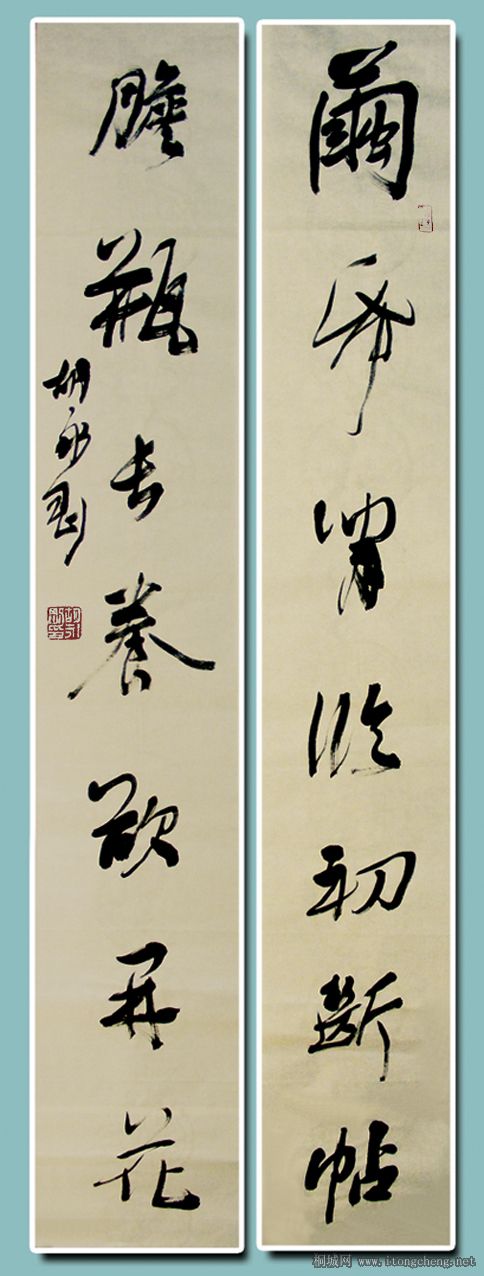 繭帋閒臨初斷帖
膽瓶長養欲開花
胡永剛
桐城网 www.itongcheng.net